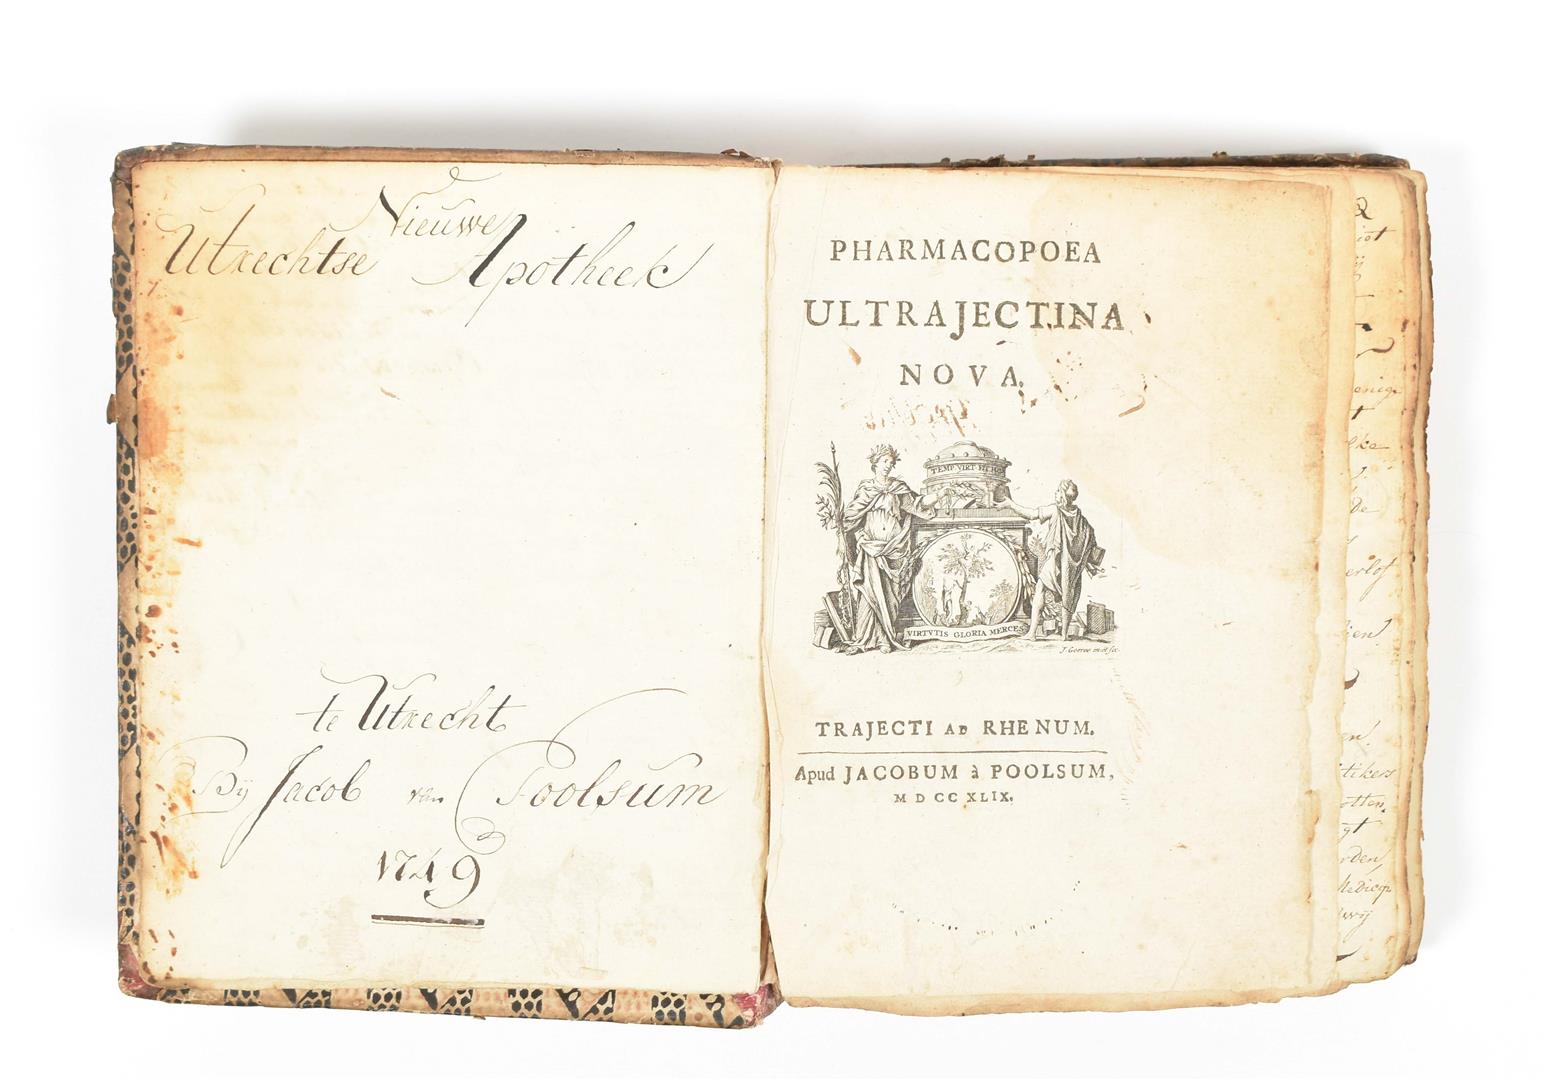 Nieuwe
Utrechtse Apotheek
te Utrecht
Bij Jacob van Poolsum
1749
PHARMACOPOEA
ULTRAJECTINA
NOVA.
TEMP. VIRT.
VIRTVTIS GLORIA MERCES
J. Goeree
TRAJECTI AD RHENUM.
Apud JACOBUM à POOLSUM,
MDCCXLIX.